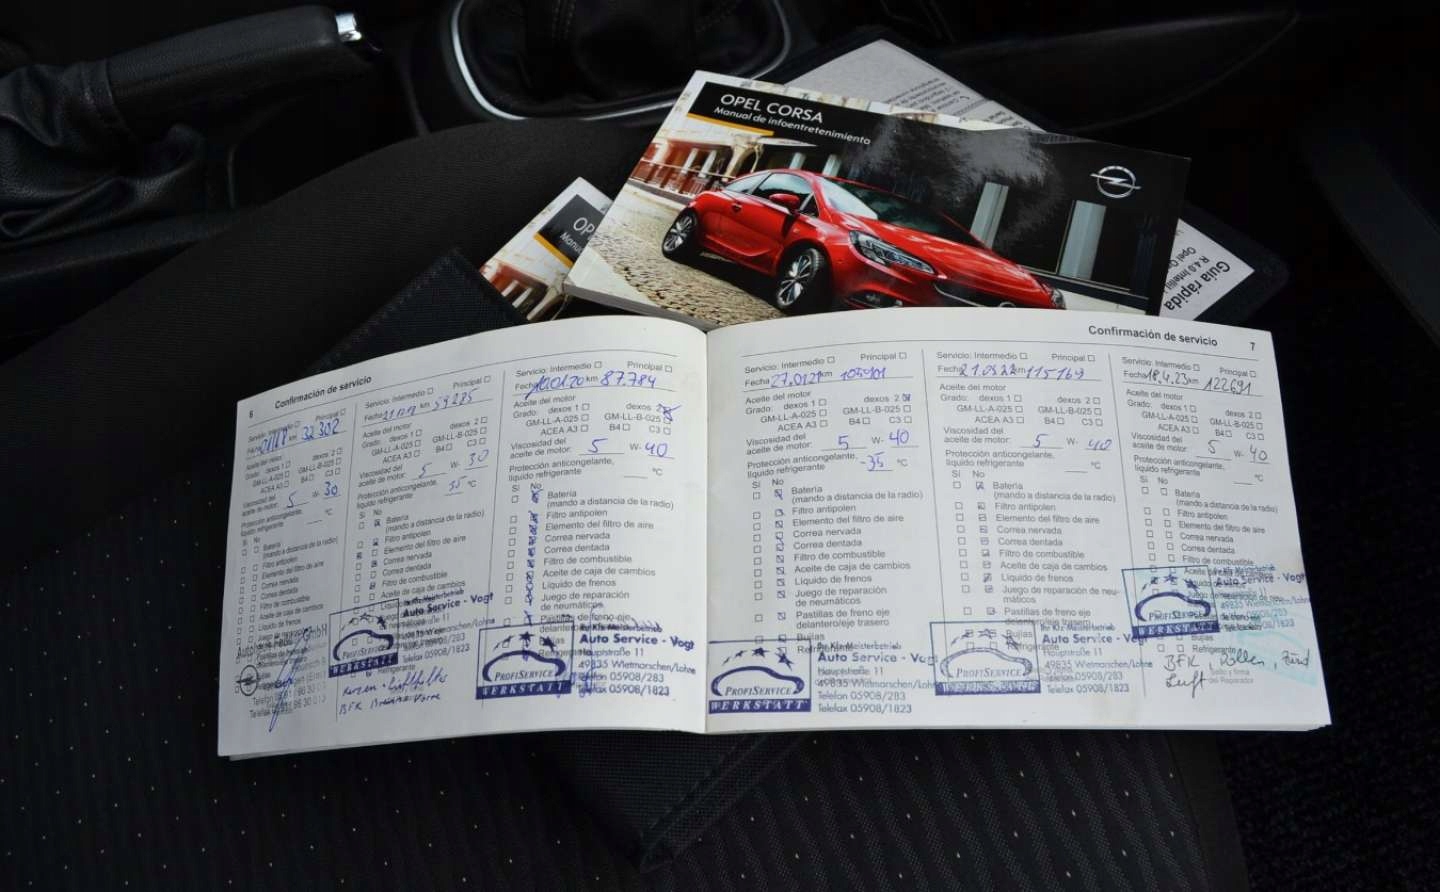 OPEL CORSA
Manual de infoentretenimiento
Guía rápida
6 Confirmación de servicio
Servicio: Intermedio Principal
km 32 302
Aceite del motor
Grado: dexos 1 dexos 2
GM-LL-A-025 GM-LL-B-025
ACEA A3 B4 C3
Viscosidad del
aceite de motor: 5 W- 30
Protección anticongelante,
líquido refrigerante °C
Sí No
Batería
(mando a distancia de la radio)
Filtro antipolen
Elemento del filtro de aire
Correa nervada
Correa dentada
Filtro de combustible
Aceite de caja de cambios
Líquido de frenos
Servicio: Intermedio Principal
Fecha km 59285
Aceite del motor
Grado: dexos 1 dexos 2
GM-LL-A-025 GM-LL-B-025
ACEA A3 B4 C3
Viscosidad del
aceite de motor: 5 W- 30
Protección anticongelante,
líquido refrigerante 35 °C
Sí No
Batería
(mando a distancia de la radio)
Filtro antipolen
Elemento del filtro de aire
Correa nervada
Correa dentada
Filtro de combustible
Aceite de caja de cambios
Auto Service - Vogt
Hauptstraße 11
49835 Wietmarschen/Lohne
Telefon 05908/283
Telefax 05908/1823
PROFISERVICE
WERKSTATT
Refrigerante
Servicio: Intermedio Principal
Fecha 10.01.20 km 87.784
Aceite del motor
Grado: dexos 1 dexos 2
GM-LL-A-025 GM-LL-B-025
ACEA A3 B4 C3
Viscosidad del
aceite de motor: 5 W- 40
Protección anticongelante,
líquido refrigerante °C
Sí No
Batería
(mando a distancia de la radio)
Filtro antipolen
Elemento del filtro de aire
Correa nervada
Correa dentada
Filtro de combustible
Aceite de caja de cambios
Líquido de frenos
Juego de reparación
de neumáticos
Pastillas de freno eje
delantero/eje trasero
Bujías
Auto Service - Vogt
Hauptstraße 11
49835 Wietmarschen/Lohne
Telefon 05908/283
Telefax 05908/1823
PROFISERVICE
WERKSTATT
Confirmación de servicio 7
Servicio: Intermedio Principal
Fecha 27.01.21 km 105401
Aceite del motor
Grado: dexos 1 dexos 2
GM-LL-A-025 GM-LL-B-025
ACEA A3 B4 C3
Viscosidad del
aceite de motor: 5 W- 40
Protección anticongelante,
líquido refrigerante -35 °C
Sí No
Batería
(mando a distancia de la radio)
Filtro antipolen
Elemento del filtro de aire
Correa nervada
Correa dentada
Filtro de combustible
Aceite de caja de cambios
Líquido de frenos
Juego de reparación
de neumáticos
Pastillas de freno eje
delantero/eje trasero
Bujías
Ihr Kfz-Meisterbetrieb
Auto Service - Vogt
Hauptstraße 11
49835 Wietmarschen/Lohne
Telefon 05908/283
Telefax 05908/1823
PROFISERVICE
WERKSTATT
Servicio: Intermedio Principal
Fecha 21.03.22 km 115169
Aceite del motor
Grado: dexos 1 dexos 2
GM-LL-A-025 GM-LL-B-025
ACEA A3 B4 C3
Viscosidad del
aceite de motor: 5 W- 40
Protección anticongelante,
líquido refrigerante °C
Sí No
Batería
(mando a distancia de la radio)
Filtro antipolen
Elemento del filtro de aire
Correa nervada
Correa dentada
Filtro de combustible
Aceite de caja de cambios
Líquido de frenos
Juego de reparación de neu-
máticos
Pastillas de freno eje
delantero/eje trasero
Bujías
Auto Service - Vogt
Hauptstraße 11
49835 Wietmarschen/Lohne
Telefon 05908/283
Telefax 05908/1823
PROFISERVICE
Servicio: Intermedio Principal
Fecha 18.4.23 km 122691
Aceite del motor
Grado: dexos 1 dexos 2
GM-LL-A-025 GM-LL-B-025
ACEA A3 B4 C3
Viscosidad del
aceite de motor: 5 W- 40
Protección anticongelante,
líquido refrigerante °C
Sí No
Batería
(mando a distancia de la radio)
Filtro antipolen
Elemento del filtro de aire
Correa nervada
Correa dentada
Filtro de combustible
Auto Service - Vogt
Hauptstraße 11
49835 Wietmarschen/Lohne
Telefon 05908/283
PROFISERVICE
WERKSTATT
Bujías
Refrigerante
BFK, Pollen, Zünd
Luft
Sello y firma
del Reparador